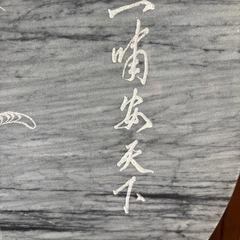 一啸安天下